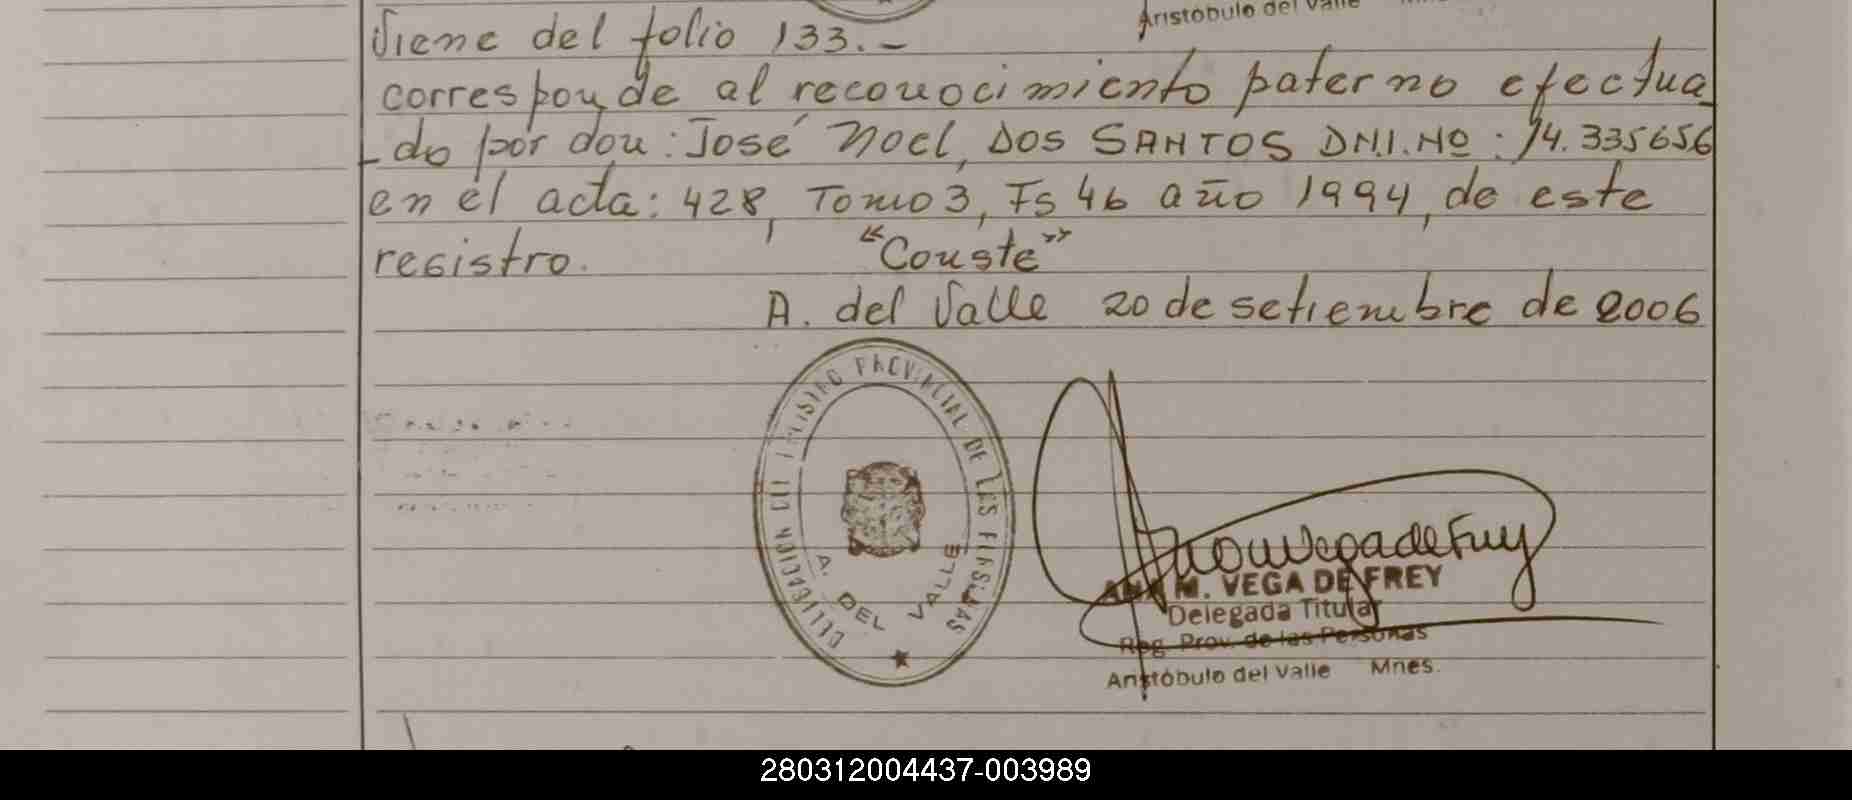 Aristóbulo del Valle Mnes.
Viene del folio 133.-
corresponde al reconocimiento paterno efectua
-do por don: José Noel, DOS SANTOS DNI.Nº: 14.335656
en el acta: 428, Tomo 3, Fs 46 año 1994, de este
registro. "Conste"
A. del Valle 20 de setiembre de 2006
DELEGACION DEL REGISTRO PROVINCIAL DE LAS PERSONAS
A. DEL VALLE
Vega de Frey
ANA M. VEGA DE FREY
Delegada Titular
Reg. Prov. de las Personas
Aristóbulo del Valle Mnes.
280312004437-003989